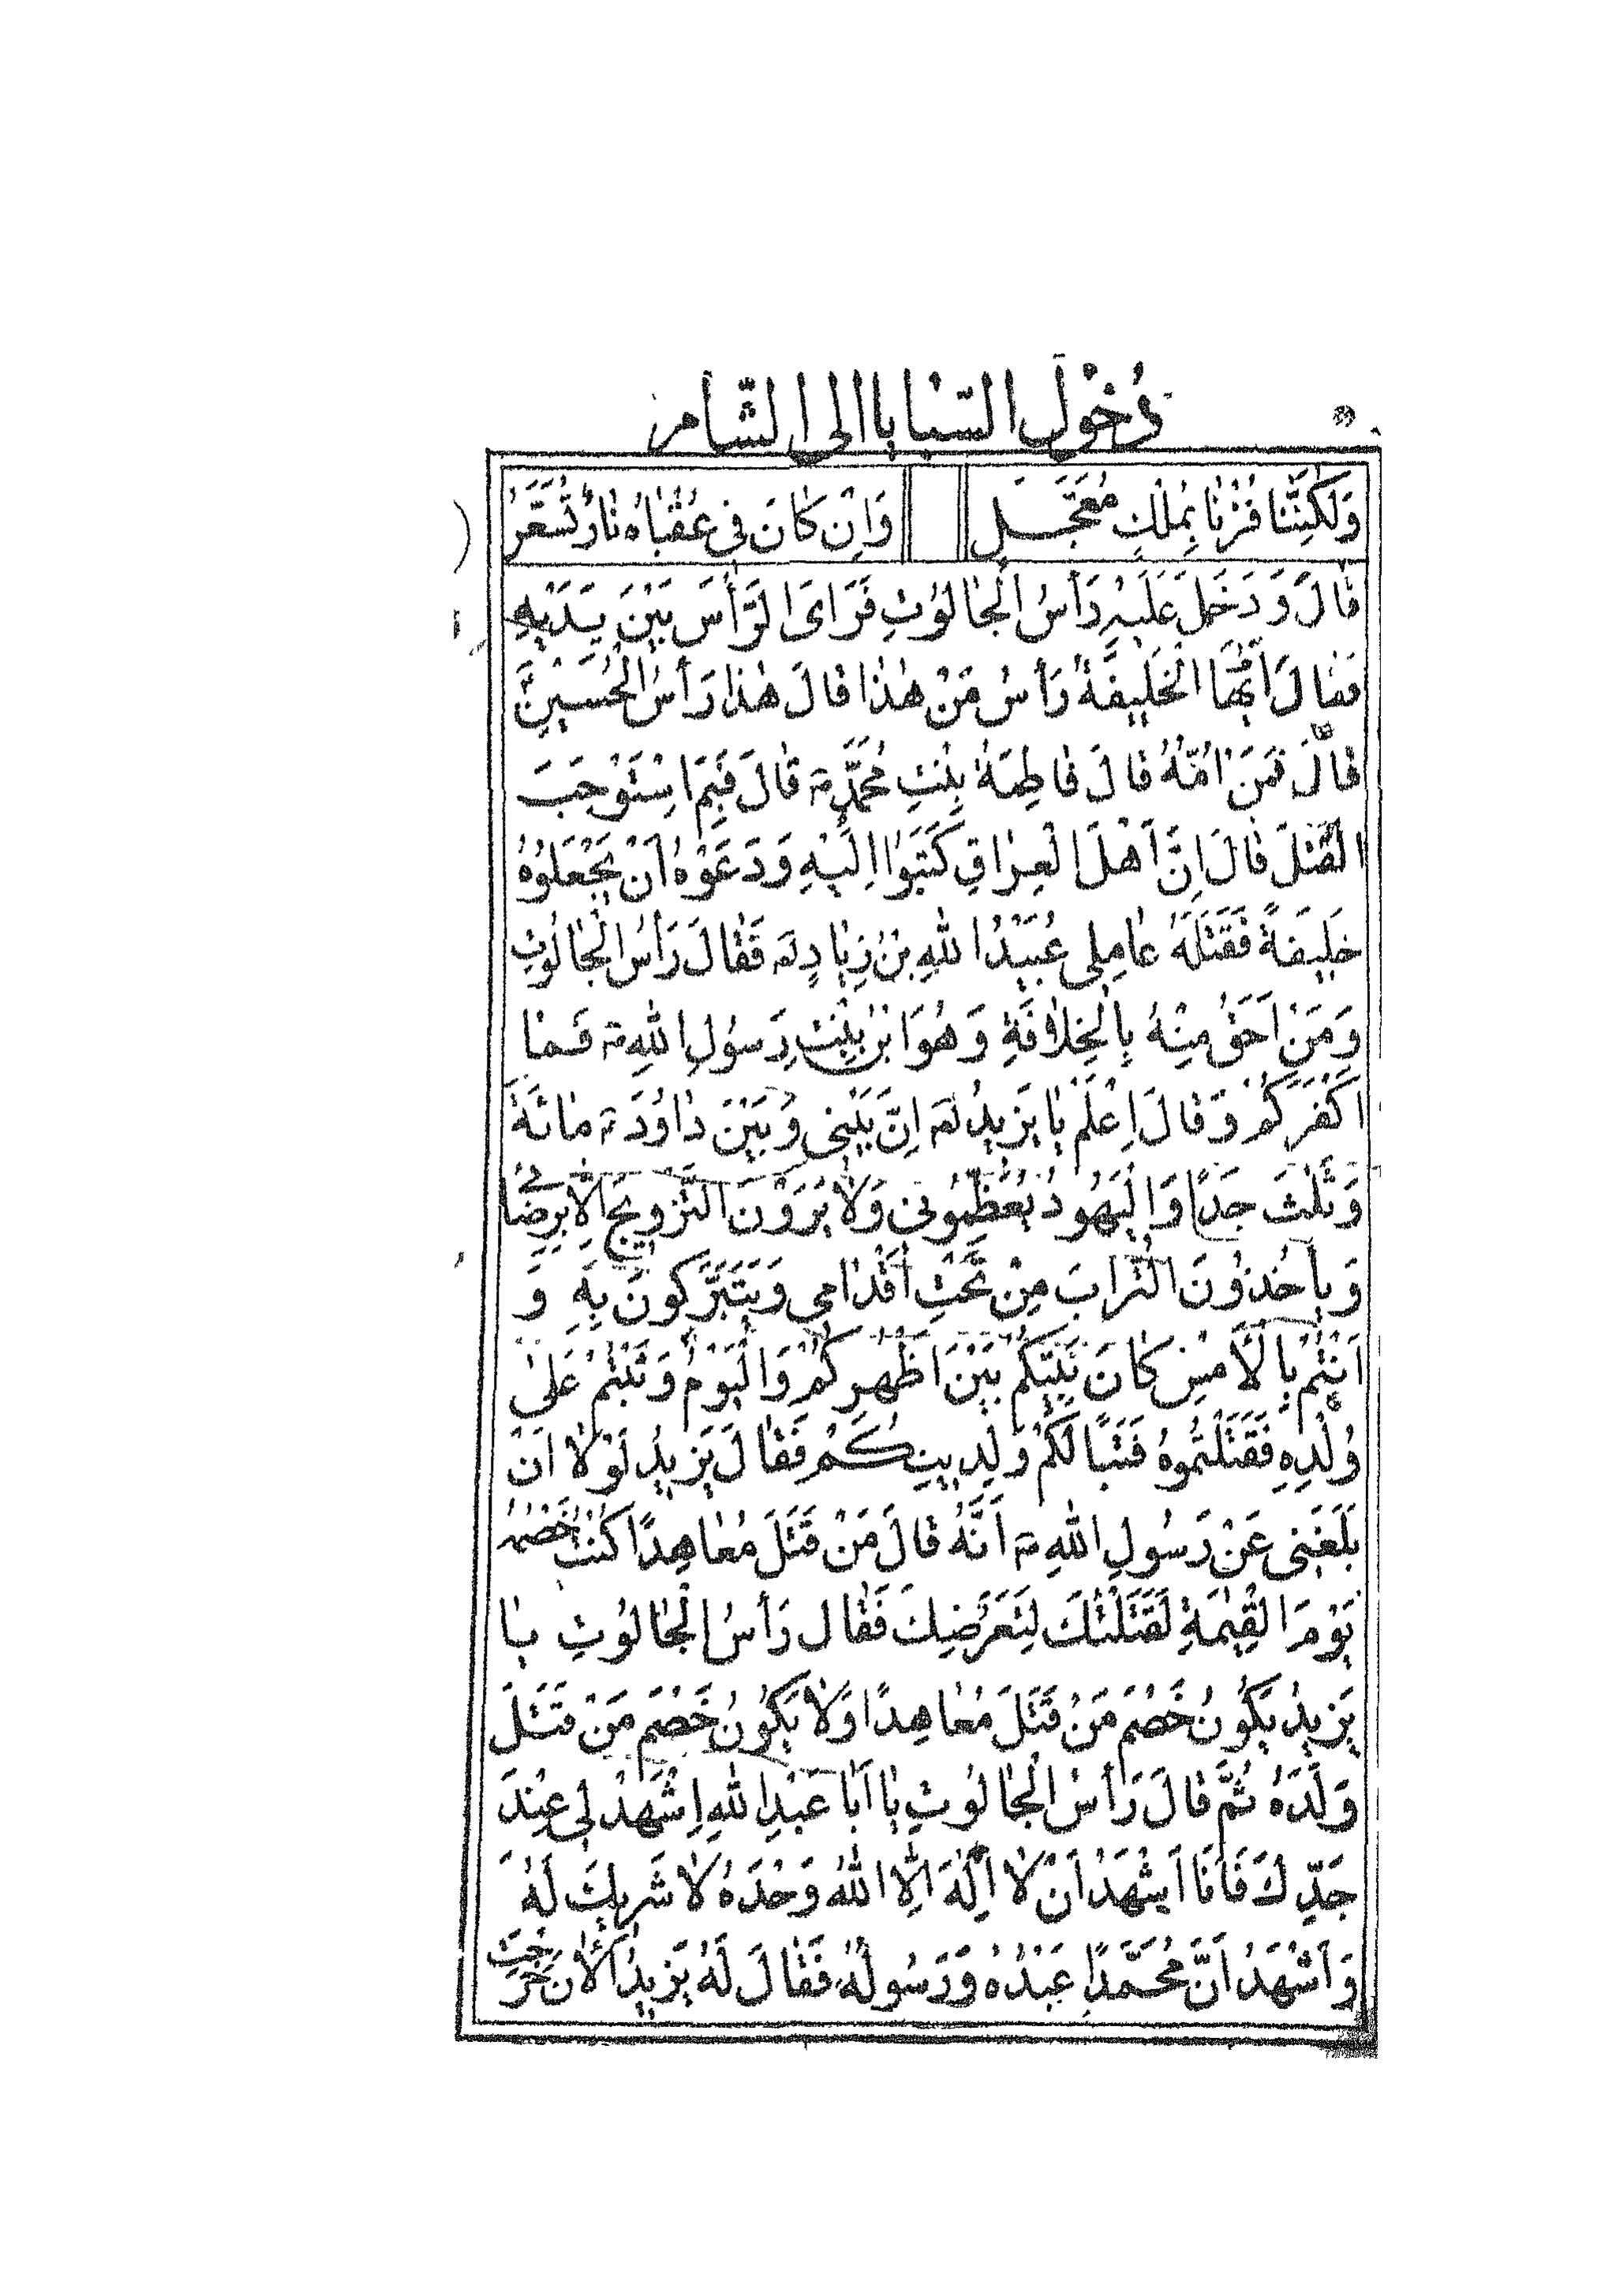 دُخُوْلُ السَّبَايَا اِلَى الشَّامِ
وَلٰكِنَّنَا فُزْنَا بِمُلْكٍ مُعَجَّلٍ وَاِنْ كَانَ فِى عُقْبَاهُ نَارٌ تُسَعَّرُ
قَالَ وَدَخَلَ عَلَيْهِ رَأْسُ الْجَالُوْتِ فَرَاَى الرَّأْسَ بَيْنَ يَدَيْهِ
فَقَالَ اَيُّهَا الْخَلِيفَةُ رَأْسُ مَنْ هٰذَا قَالَ هٰذَا رَأْسُ الْحُسَيْنِ
قَالَ فَمَنْ اُمُّهُ قَالَ فَاطِمَةُ بِنْتِ مُحَمَّدٍ ص قَالَ فَبِمَ اسْتَوْجَبَ
الْقَتْلَ قَالَ اِنَّ اَهْلَ الْعِرَاقِ كَتَبُوْا اِلَيْهِ وَدَعَوْهُ اَنْ يَجْعَلُوْهُ
خَلِيفَةً فَقَتَلَهُ عَامِلِى عُبَيْدُ اللهِ بْنُ زِيَادٍ لعه فَقَالَ رَأْسُ الْجَالُوْتِ
وَمَنْ اَحَقُّ مِنْهُ بِالْخِلَافَةِ وَهُوَ ابْنُ بِنْتِ رَسُوْلِ اللهِ ص فَمَا
اَكْفَرَكُمْ وَقَالَ اِعْلَمْ يَا يَزِيدُ لعه اِنَّ بَيْنِى وَبَيْنَ دَاوُدَ ع مَائَةً
وَثَلٰثَ جَدًّا وَالْيَهُودُ يُعَظِّمُونِى وَلَا يَرَوْنَ التَّزْوِيجَ اِلَّا بِرِضَائِى
وَيَأْخُذُوْنَ التُّرَابَ مِنْ تَحْتِ اَقْدَامِى وَيَتَبَرَّكُونَ بِهِ وَ
اَنْتُمْ بِالْاَمْسِ كَانَ نَبِيُّكُمْ بَيْنَ اَظْهُرِكُمْ وَالْيَوْمَ وَثَبْتُمْ عَلٰى
وُلْدِهِ فَقَتَلْتُمُوهُ فَتَبًّا لَكُمْ وَلِدِينِكُمْ فَقَالَ يَزِيدُ لَوْلَا اَنْ
بَلَغَنِى عَنْ رَسُولِ اللهِ ص اَنَّهُ قَالَ مَنْ قَتَلَ مُعَاهِدًا كُنْتُ خَصْمَهُ
يَوْمَ الْقِيٰمَةِ لَقَتَلْتُكَ لِتَعَرُّضِكَ فَقَالَ رَأْسُ الْجَالُوْتِ يَا
يَزِيدُ يَكُوْنُ خَصْمَ مَنْ قَتَلَ مُعَاهِدًا وَلَا يَكُوْنُ خَصْمَ مَنْ قَتَلَ
وَلَدَهُ ثُمَّ قَالَ رَأْسُ الْجَالُوْتِ يَا اَبَا عَبْدِ اللهِ اِشْهَدْ لِى عِنْدَ
جَدِّكَ فَاَنَا اَشْهَدُ اَنْ لَا اِلٰهَ اِلَّا اللهُ وَحْدَهُ لَا شَرِيكَ لَهُ
وَاَشْهَدُ اَنَّ مُحَمَّدًا عَبْدُهُ وَرَسُولُهُ فَقَالَ لَهُ يَزِيدُ اَلْاٰنَ خَرَجْتَ